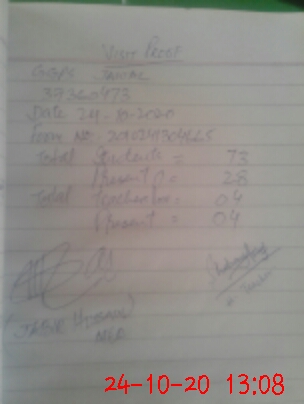 VISIT PROOF
GGPS
37320473
Date 24-10-2020
Form No:
Total Students = 73
Present = 28
Total Teachers = 04
Present = 04
(JABIR HUSSAIN)
24-10-20 13:08